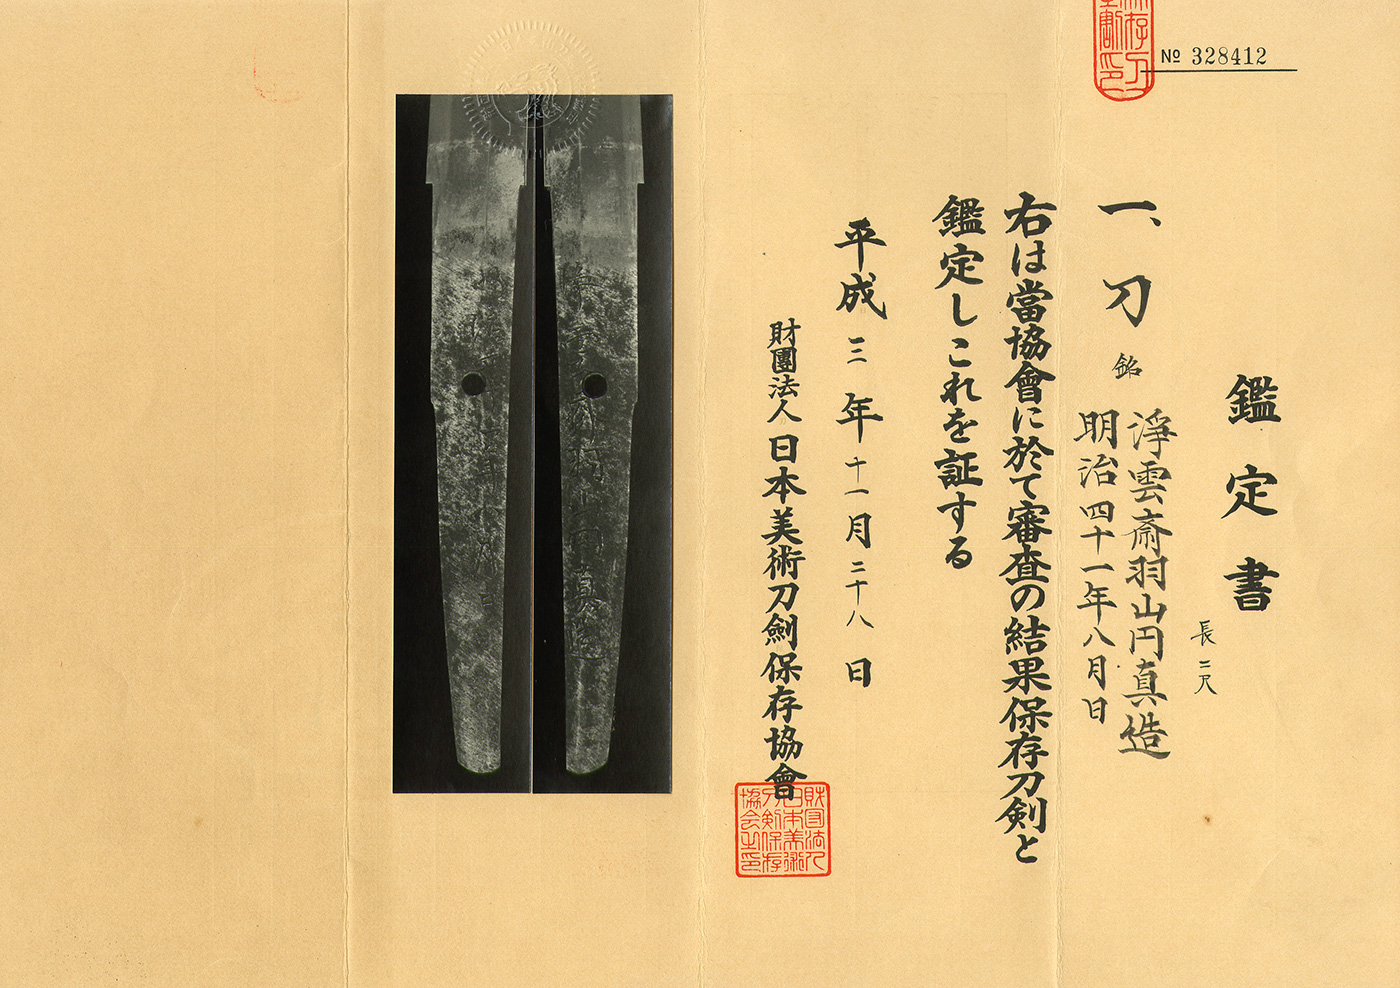 № 328412
鑑定書
長 二尺
一、刀 銘 淨雲斎羽山円真造
明治四十一年八月日
右は當協會に於て審査の結果保存刀剣と
鑑定しこれを証する
平成三年十一月二十八日
財團法人日本美術刀劍保存協會
財団法人
日本美術
刀剣保存
協会之印